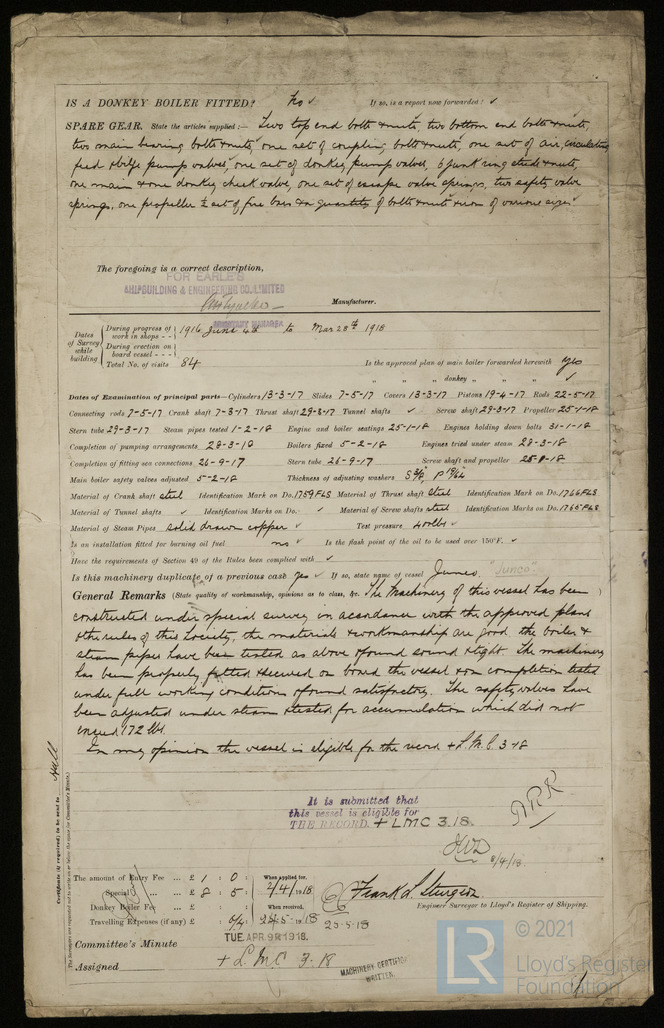 IS A DONKEY BOILER FITTED? No ✓ If so, is a report now forwarded? ✓
SPARE GEAR. State the articles supplied:— Two top end bolts & nuts, two bottom end bolts & nuts,
two main bearing bolts & nuts, one set of coupling bolts & nuts, one set of air, circulating
feed & bilge pump valves, one set of donkey pump valves, 6 junk ring studs & nuts,
one main & one donkey check valve, one set of escape valve springs, two safety valve
springs, one propeller ½ set of fire bars & a quantity of bolts & nuts & iron of various sizes
The foregoing is a correct description,
FOR EARLE'S
SHIPBUILDING & ENGINEERING CO., LIMITED
Manufacturer.
SECRETARY MANAGER
Dates of Survey while building
During progress of work in shops - - 1916 June 4th to Mar 28th 1918
During erection on board vessel - - -
Total No. of visits 84 Is the approved plan of main boiler forwarded herewith yes
" " " donkey " " " ✓
Dates of Examination of principal parts—Cylinders 13-3-17 Slides 7-5-17 Covers 13-3-17 Pistons 19-4-17 Rods 22-5-17
Connecting rods 7-5-17 Crank shaft 7-3-17 Thrust shaft 29-3-17 Tunnel shafts ✓ Screw shaft 29-3-17 Propeller 25-1-18
Stern tube 29-3-17 Steam pipes tested 1-2-18 Engine and boiler seatings 25-1-18 Engines holding down bolts 31-1-18
Completion of pumping arrangements 28-3-18 Boilers fixed 5-2-18 Engines tried under steam 28-3-18
Completion of fitting sea connections 26-9-17 Stern tube 26-9-17 Screw shaft and propeller 25-1-18
Main boiler safety valves adjusted 5-2-18 Thickness of adjusting washers
Material of Crank shaft steel Identification Mark on Do. 1759FLS Material of Thrust shaft steel Identification Mark on Do. 1766FLS
Material of Tunnel shafts ✓ Identification Marks on Do. ✓ Material of Screw shafts steel Identification Marks on Do. 1765FLS
Material of Steam Pipes solid drawn copper ✓ Test pressure 400 lbs ✓
Is an installation fitted for burning oil fuel no ✓ Is the flash point of the oil to be used over 150°F. ✓
Have the requirements of Section 49 of the Rules been complied with ✓
Is this machinery duplicate of a previous case yes ✓ If so, state name of vessel Junco. "Junco"
General Remarks (State quality of workmanship, opinions as to class, &c. The Machinery of this vessel has been )
constructed under special survey in accordance with the approved plans
& the rules of this Society, the materials & workmanship are good, the boiler &
steam pipes have been tested as above & found sound & tight. The machinery
has been properly fitted & secured on board the vessel & on completion tested
under full working conditions & found satisfactory. The safety valves have
been adjusted under steam & tested for accumulation which did not
exceed 172 lbs.
In my opinion the vessel is eligible for the record + L.M.C. 3-18
It is submitted that
this vessel is eligible for
THE RECORD. + LMC 3.18.
8/4/18
Certificate (if required) to be sent to Hull
(The Surveyors are requested not to write on or below the space for Committee's Minute.)
The amount of Entry Fee ... £ 1 : 0 : When applied for,
Special ... £ 8 : 5 : 2/4/1918
Donkey Boiler Fee ... £ : : When received,
Travelling Expenses (if any) £ : 24-5-1918 25-5-18
Frank L. Sturgeon
Engineer Surveyor to Lloyd's Register of Shipping.
Committee's Minute TUE. APR. 9 1918.
Assigned + L.M.C. 3.18
MACHINERY CERTIFICATE
WRITTEN.
© 2021
LR
Lloyd's Register
Foundation